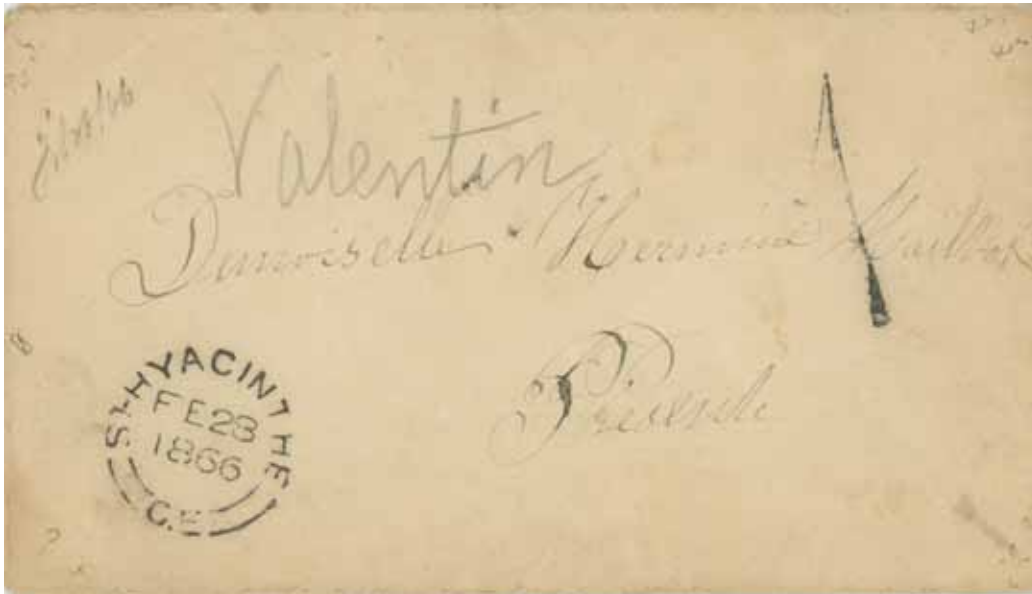 Valentin
Demoiselle Herminie
Présente
ST. HYACINTHE
FE 28
1866
C.E.
1